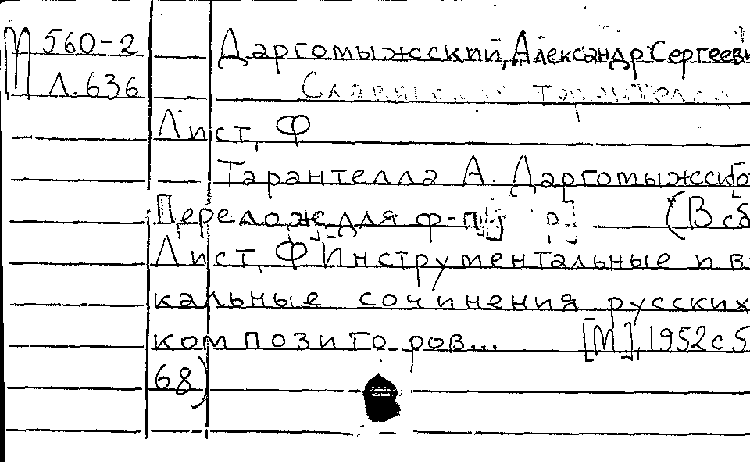 М 560-2 Даргомыжсский, Александр Сергеев
Л.636 Славянская тарантелла
Лист, Ф
Тарантелла А. Даргомыжско
Перелож для ф-п (В сб
Лист, Ф Инструментальные и в
кальные сочинения русских
композиторов... [М], 1952 с 5
68)